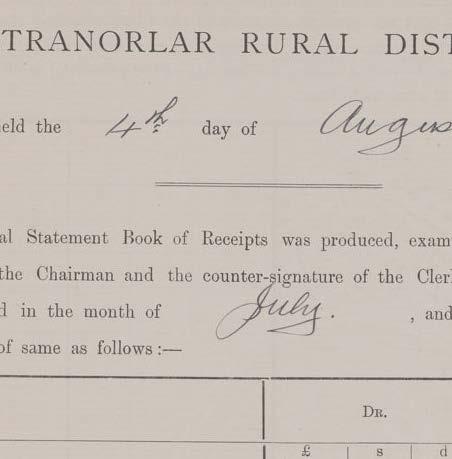 TRANORLAR RURAL DIST
eld the 4th day of Augus
al Statement Book of Receipts was produced, exam
the Chairman and the counter-signature of the Cler
d in the month of July. , and
of same as follows :—
Dr.
£ s d